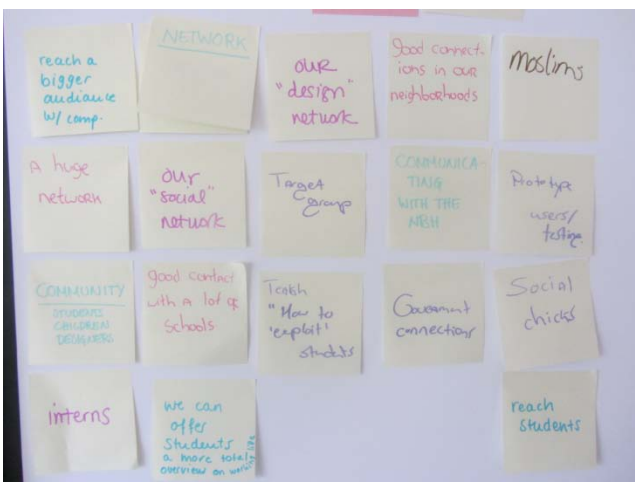 reach a
bigger
audiance
w/ comp.
NETWORK
our
"design"
network
good connect-
ions in our
neighborhoods
moslims
A huge
network
our
"social"
network
Target
group
COMMUNICA-
TING
WITH THE
NBH
Prototype
users/
testing
COMMUNITY
STUDENTS
CHILDREN
DESIGNERS
good contact
with a lot of
schools
"How to
'exploit'
students
Government
connections
Social
chicks
interns
we can
offer
students
a more total
overview on
reach
students